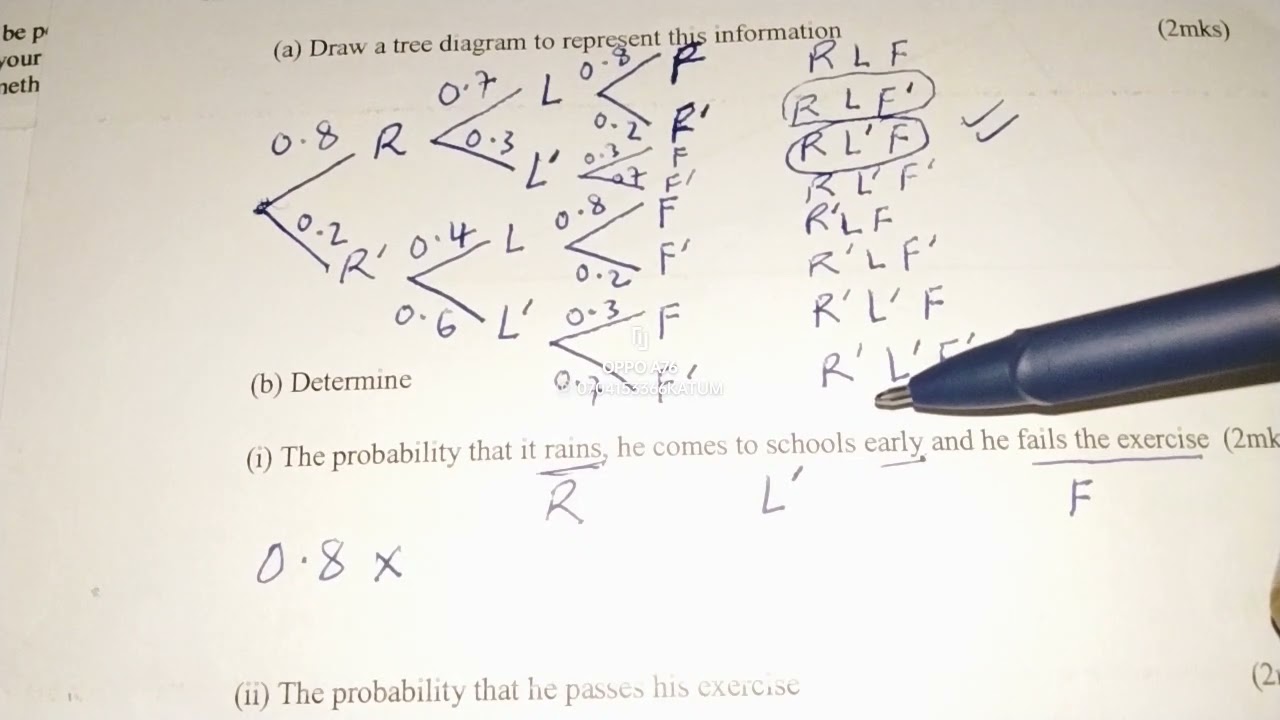 be p
your
neth
(a) Draw a tree diagram to represent this information (2mks)
0.8 R 0.7 L 0.8 F R L F
0.2 F' R L F'
0.3 L' 0.3 F R L' F
0.7 F' R L' F'
0.2 R' 0.4 L 0.8 F R' L F
0.2 F' R' L F'
0.6 L' 0.3 F R' L' F
0.7 F' R' L' F'
OPPO A76
0704153366KATUM
(b) Determine
(i) The probability that it rains, he comes to schools early and he fails the exercise (2mk
R L' F
0.8 x
(ii) The probability that he passes his exercise (2